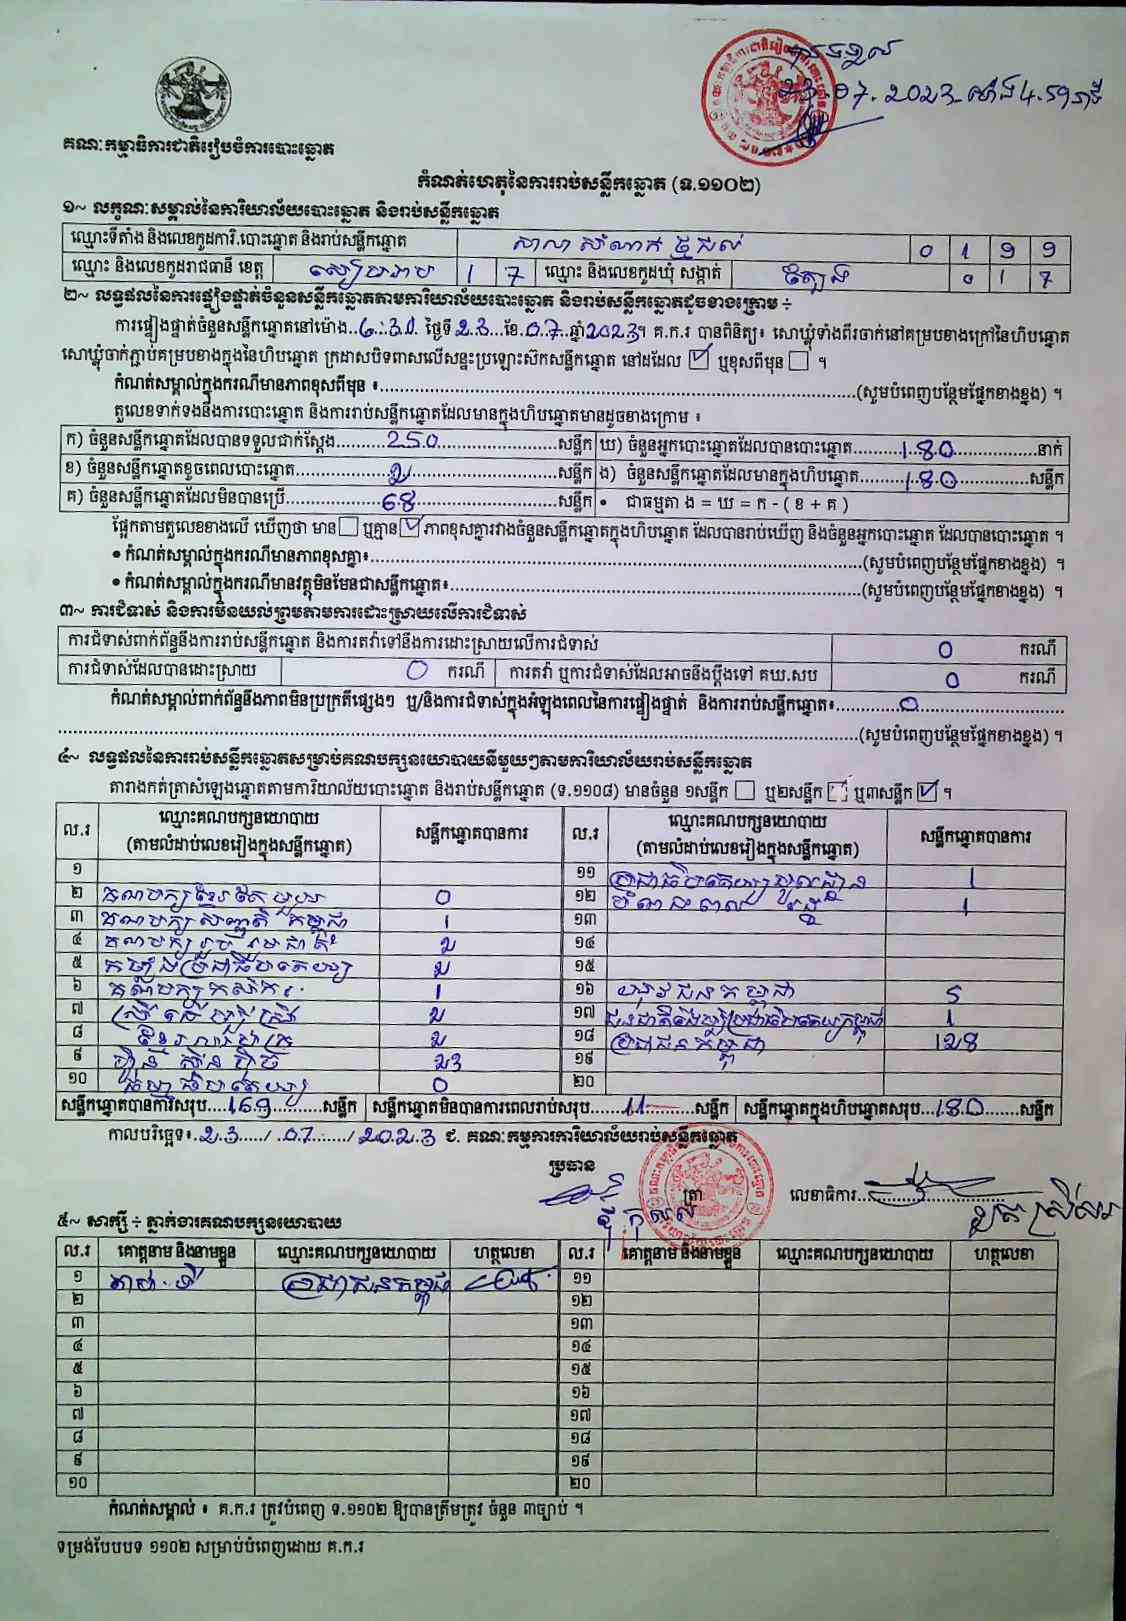 ២៣.០៧.២០២៣ ម៉ោង ៤.៥១ នាទី
គណៈកម្មាធិការជាតិរៀបចំការបោះឆ្នោត
កំណត់ហេតុនៃការរាប់សន្លឹកឆ្នោត (ទ.១១០២)
១~ លក្ខណៈសម្គាល់នៃការិយាល័យបោះឆ្នោត និងរាប់សន្លឹកឆ្នោត
ឈ្មោះទីតាំង និងលេខកូដការិ.បោះឆ្នោត និងរាប់សន្លឹកឆ្នោត សាលាសំណាក់ 0 1 9 9
ឈ្មោះ និងលេខកូដរាជធានី ខេត្ត សៀមរាប 1 7 ឈ្មោះ និងលេខកូដឃុំ សង្កាត់ 0 1 7
២~ លទ្ធផលនៃការផ្ទៀងផ្ទាត់ចំនួនសន្លឹកឆ្នោតតាមការិយាល័យបោះឆ្នោត និងរាប់សន្លឹកឆ្នោតដូចខាងក្រោម ÷
ការផ្ទៀងផ្ទាត់ចំនួនសន្លឹកឆ្នោតនៅម៉ោង ថ្ងៃទី 23 ខែ 07 ឆ្នាំ 2023 ។ គ.ក.រ បានពិនិត្យ៖ សោឃ្លុំទាំងពីរចាក់នៅគម្របខាងក្រៅនៃហិបឆ្នោត
សោឃ្លុំចាក់ភ្ជាប់គម្របខាងក្នុងនៃហិបឆ្នោត ក្រដាសបិទពាសលើសន្ទះប្រឡោះស៊កសន្លឹកឆ្នោត នៅដដែល ☑ ឬខុសពីមុន ☐ ។
កំណត់សម្គាល់ក្នុងករណីមានភាពខុសពីមុន ៖ (សូមបំពេញបន្ថែមផ្នែកខាងខ្នង) ។
តួលេខទាក់ទងនឹងការបោះឆ្នោត និងការរាប់សន្លឹកឆ្នោតដែលមានក្នុងហិបឆ្នោតមានដូចខាងក្រោម ៖
ក) ចំនួនសន្លឹកឆ្នោតដែលបានទទួលជាក់ស្តែង 250 សន្លឹក ឃ) ចំនួនអ្នកបោះឆ្នោតដែលបានបោះឆ្នោត 180 នាក់
ខ) ចំនួនសន្លឹកឆ្នោតខូចពេលបោះឆ្នោត 2 សន្លឹក ង) ចំនួនសន្លឹកឆ្នោតដែលមានក្នុងហិបឆ្នោត 180 សន្លឹក
គ) ចំនួនសន្លឹកឆ្នោតដែលមិនបានប្រើ 68 សន្លឹក • ជាធម្មតា ង = ឃ = ក - ( ខ + គ )
ផ្អែកតាមតួលេខខាងលើ ឃើញថា មាន ☐ ឬគ្មាន ☑ ភាពខុសគ្នារវាងចំនួនសន្លឹកឆ្នោតក្នុងហិបឆ្នោត ដែលបានរាប់ឃើញ និងចំនួនអ្នកបោះឆ្នោត ដែលបានបោះឆ្នោត ។
• កំណត់សម្គាល់ក្នុងករណីមានភាពខុសគ្នា៖ (សូមបំពេញបន្ថែមផ្នែកខាងខ្នង) ។
• កំណត់សម្គាល់ក្នុងករណីមានវត្ថុមិនមែនជាសន្លឹកឆ្នោត៖ (សូមបំពេញបន្ថែមផ្នែកខាងខ្នង) ។
៣~ ការជំទាស់ និងការមិនយល់ព្រមតាមការដោះស្រាយលើការជំទាស់
ការជំទាស់ពាក់ព័ន្ធនឹងការរាប់សន្លឹកឆ្នោត និងការតវ៉ាទៅនឹងការដោះស្រាយលើការជំទាស់ 0 ករណី
ការជំទាស់ដែលបានដោះស្រាយ 0 ករណី ការតវ៉ា ឬការជំទាស់ដែលអាចនឹងប្តឹងទៅ គឃ.សប 0 ករណី
កំណត់សម្គាល់ពាក់ព័ន្ធនឹងភាពមិនប្រក្រតីផ្សេងៗ ឬ/និងការជំទាស់ក្នុងអំឡុងពេលនៃការផ្ទៀងផ្ទាត់ និងការរាប់សន្លឹកឆ្នោត៖ 0
(សូមបំពេញបន្ថែមផ្នែកខាងខ្នង) ។
៤~ លទ្ធផលនៃការរាប់សន្លឹកឆ្នោតសម្រាប់គណបក្សនយោបាយនីមួយៗតាមការិយាល័យរាប់សន្លឹកឆ្នោត
តារាងកត់ត្រាសំឡេងឆ្នោតតាមការិយាល័យបោះឆ្នោត និងរាប់សន្លឹកឆ្នោត (ទ.១១០៨) មានចំនួន ១សន្លឹក ☐ ឬ២សន្លឹក ☐ ឬ៣សន្លឹក ☑ ។
ល.រ ឈ្មោះគណបក្សនយោបាយ (តាមលំដាប់លេខរៀងក្នុងសន្លឹកឆ្នោត) សន្លឹកឆ្នោតបានការ ល.រ ឈ្មោះគណបក្សនយោបាយ (តាមលំដាប់លេខរៀងក្នុងសន្លឹកឆ្នោត) សន្លឹកឆ្នោតបានការ
១ ១១ ប្រជាធិបតេយ្យមូលដ្ឋាន 1
២ គណបក្សខ្មែរតែមួយ 0 ១២ 1
៣ គណបក្សសញ្ជាតិកម្ពុជា 1 ១៣
៤ គណបក្សរួបរួមជាតិ 2 ១៤
៥ កម្លាំងប្រជាធិបតេយ្យ 2 ១៥
៦ គណបក្សកសិករ 1 ១៦ យុវជនកម្ពុជា 5
៧ ស្ត្រីដើម្បីស្ត្រី 2 ១៧ ជនជាតិដើមប្រជាធិបតេយ្យកម្ពុជា 1
៨ 2 ១៨ ប្រជាជនកម្ពុជា 128
៩ ហ៊្វុនស៊ិនប៉ិច 23 ១៩
១០ ធម្មាធិបតេយ្យ 0 ២០
សន្លឹកឆ្នោតបានការសរុប 169 សន្លឹក សន្លឹកឆ្នោតមិនបានការពេលរាប់សរុប 11 សន្លឹក សន្លឹកឆ្នោតក្នុងហិបឆ្នោតសរុប 180 សន្លឹក
កាលបរិច្ឆេទ៖ 23 / 07 / 2023 ជ. គណៈកម្មការការិយាល័យរាប់សន្លឹកឆ្នោត
ប្រធាន
ត្រា លេខាធិការ
៥~ សាក្សី ÷ ភ្នាក់ងារគណបក្សនយោបាយ
ល.រ គោត្តនាម និងនាមខ្លួន ឈ្មោះគណបក្សនយោបាយ ហត្ថលេខា ល.រ គោត្តនាម និងនាមខ្លួន ឈ្មោះគណបក្សនយោបាយ ហត្ថលេខា
១ ប្រជាជនកម្ពុជា ១១
២ ១២
៣ ១៣
៤ ១៤
៥ ១៥
៦ ១៦
៧ ១៧
៨ ១៨
៩ ១៩
១០ ២០
កំណត់សម្គាល់ ៖ គ.ក.រ ត្រូវបំពេញ ទ.១១០២ ឱ្យបានត្រឹមត្រូវ ចំនួន ៣ច្បាប់ ។
ទម្រង់បែបបទ ១១០២ សម្រាប់បំពេញដោយ គ.ក.រ